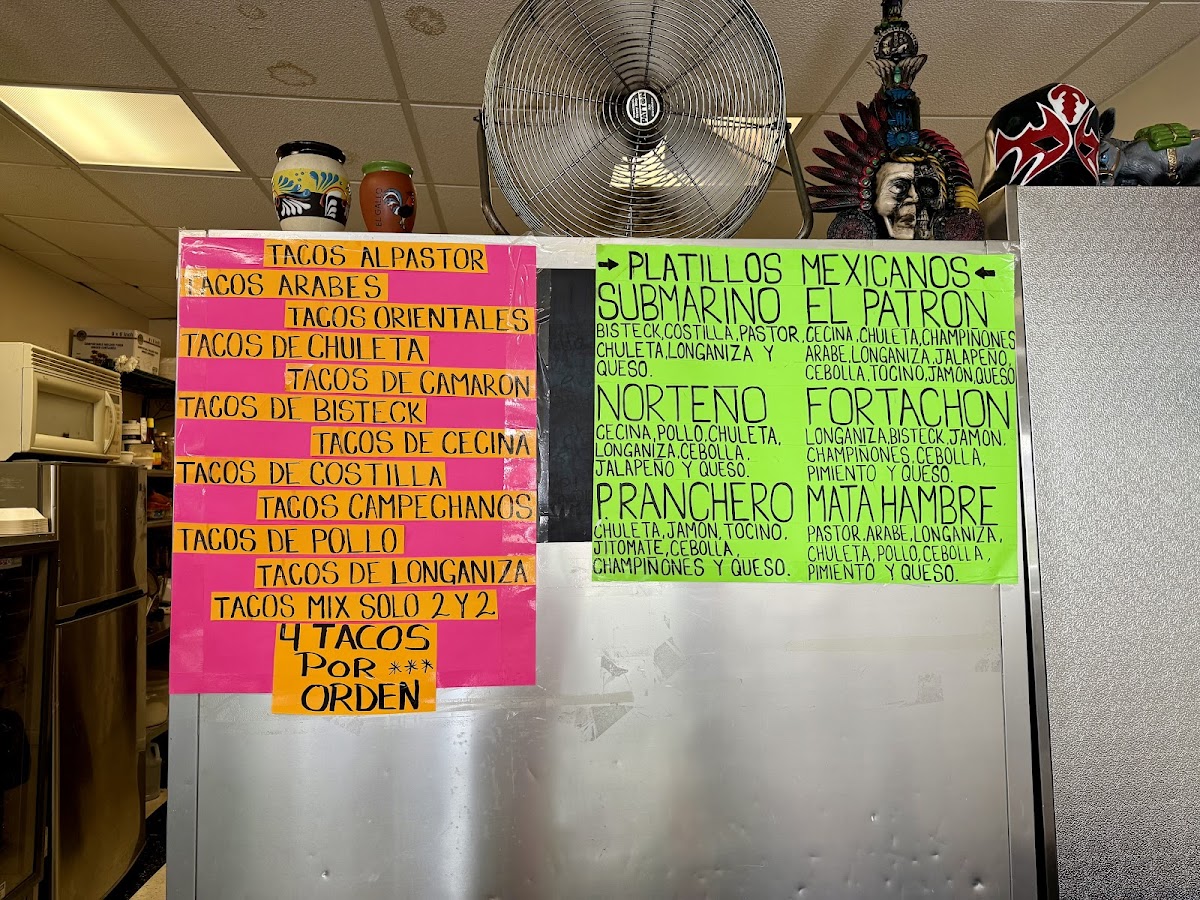 TACOS AL PASTOR
TACOS ARABES
TACOS ORIENTALES
TACOS DE CHULETA
TACOS DE CAMARON
TACOS DE BISTECK
TACOS DE CECINA
TACOS DE COSTILLA
TACOS CAMPECHANOS
TACOS DE POLLO
TACOS DE LONGANIZA
TACOS MIX SOLO 2 Y 2
4 TACOS
POR ***
ORDEN
→ PLATILLOS MEXICANOS ←
SUBMARINO
BISTECK, COSTILLA, PASTOR,
CHULETA, LONGANIZA Y
QUESO.
EL PATRON
CECINA, CHULETA, CHAMPIÑONES
ARABE, LONGANIZA, JALAPEÑO,
CEBOLLA, TOCINO, JAMON, QUESO
NORTEÑO
CECINA, POLLO, CHULETA,
LONGANIZA, CEBOLLA,
JALAPEÑO Y QUESO.
FORTACHON
LONGANIZA, BISTECK, JAMON.
CHAMPIÑONES, CEBOLLA,
PIMIENTO Y QUESO.
PRANCHERO
CHULETA, JAMON, TOCINO,
JITOMATE, CEBOLLA,
CHAMPIÑONES Y QUESO.
MATA HAMBRE
PASTOR, ARABE, LONGANIZA,
CHULETA, POLLO, CEBOLLA,
PIMIENTO Y QUESO.